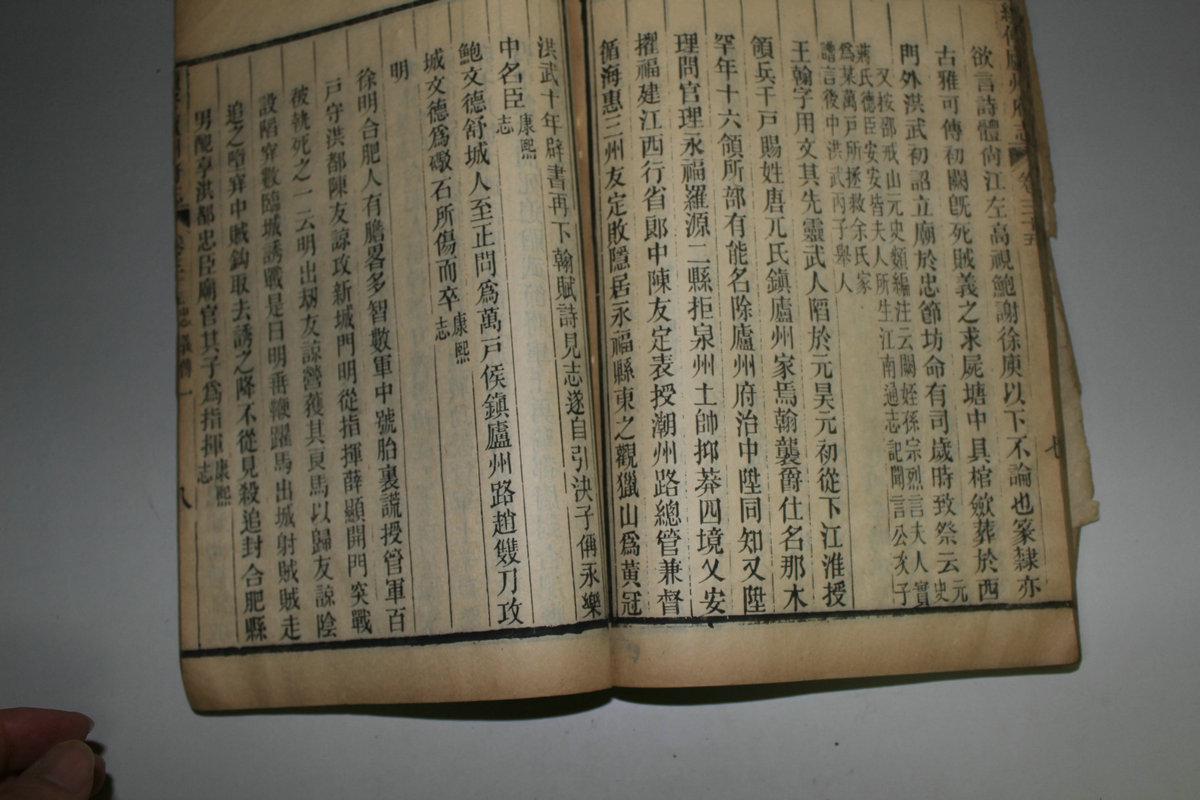 續修廬州府志 卷三十五
欲言詩體尙江左高視鮑謝徐庾以下不論也篆隸亦
古雅可傳初闕旣死賊義之求屍塘中具棺斂葬於西
門外洪武初詔立廟於忠節坊命有司歲時致祭云元史
又按部戒山元史類編注云闕姪孫宗烈言夫人實
蔣氏德臣安安皆夫人所生江南通志記聞言公次子
爲某萬戶所拯救余氏家
譜言後中洪武丙子舉人
王翰字用文其先靈武人陷於元昊元初從下江淮授
領兵千戸賜姓唐兀氏鎭廬州家焉翰襲爵仕名那木
罕年十六領所部有能名除廬州府治中陞同知又陞
理問官理永福羅源二縣拒泉州土帥抑莽四境乂安
擢福建江西行省郞中陳友定表授潮州路總管兼督
循海惠三州友定敗隱居永福縣東之觀獵山爲黃冠
七
洪武十年辟書再下翰賦詩見志遂自引決子偁永樂
中名臣康熙志
鮑文德舒城人至正間爲萬戸侯鎭廬州路趙雙刀攻
城文德爲礮石所傷而卒康熙志
明
徐明合肥人有膽畧多智數軍中號胎裏謊授管軍百
戸守洪都陳友諒攻新城門明從指揮薛顯開門突戰
被執死之一云明出刼友諒營獲其良馬以歸友諒陰
設陷穽數臨城誘戰是日明垂鞭躍馬出城射賊賊走
追之墮穽中賊鈎取去誘之降不從見殺追封合肥縣
男配享洪都忠臣廟官其子爲指揮康熙志
八